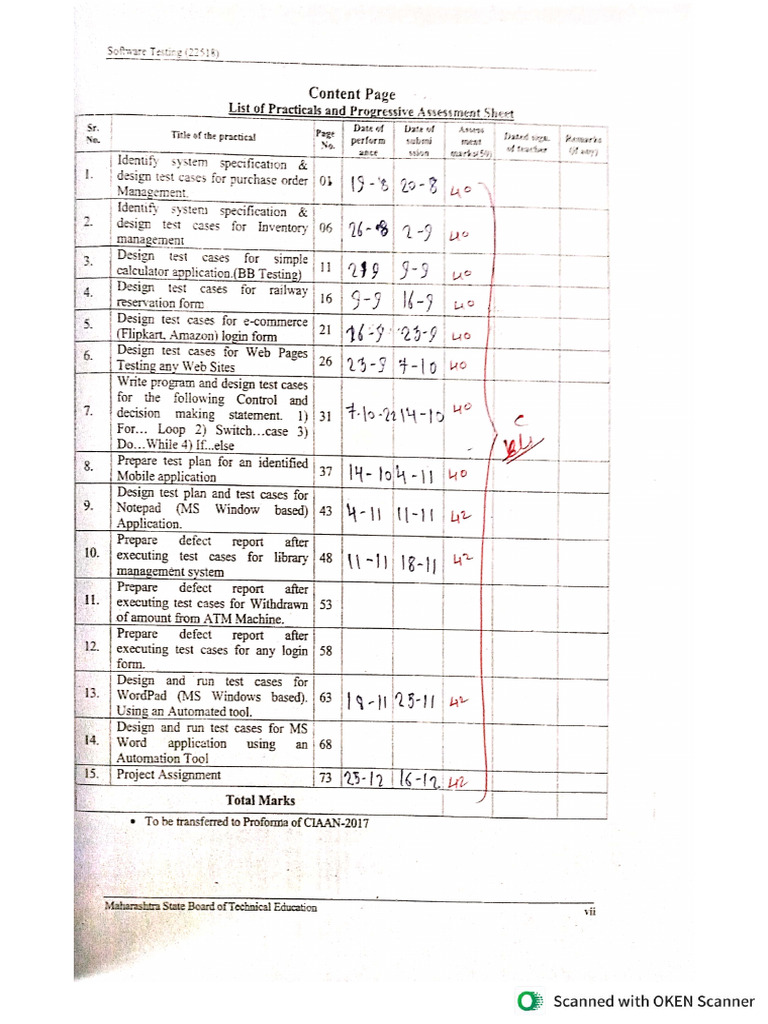 Software Testing (22518)
Content Page
List of Practicals and Progressive Assessment Sheet
Sr. No. Title of the practical Page No. Date of perform ance Date of submi ssion Assess ment marks(50) Dated sign. of teacher Remarks (if any)
1. Identify system specification & design test cases for purchase order Management. 01 19-8 20-8 40
2. Identify system specification & design test cases for Inventory management 06 26-8 2-9 40
3. Design test cases for simple calculator application.(BB Testing) 11 2-9 9-9 40
4. Design test cases for railway reservation form 16 9-9 16-9 40
5. Design test cases for e-commerce (Flipkart, Amazon) login form 21 16-9 23-9 40
6. Design test cases for Web Pages Testing any Web Sites 26 23-9 7-10 40
7. Write program and design test cases for the following Control and decision making statement. 1) For... Loop 2) Switch...case 3) Do...While 4) If...else 31 7-10-22 14-10 40
C
8. Prepare test plan for an identified Mobile application 37 14-10 4-11 40
9. Design test plan and test cases for Notepad (MS Window based) Application. 43 4-11 11-11 42
10. Prepare defect report after executing test cases for library management system 48 11-11 18-11 42
11. Prepare defect report after executing test cases for Withdrawn of amount from ATM Machine. 53
12. Prepare defect report after executing test cases for any login form. 58
13. Design and run test cases for WordPad (MS Windows based). Using an Automated tool. 63 18-11 25-11 42
14. Design and run test cases for MS Word application using an Automation Tool 68
15. Project Assignment 73 25-12 16-12 42
Total Marks
• To be transferred to Proforma of CIAAN-2017
Maharashtra State Board of Technical Education
vii
Scanned with OKEN Scanner